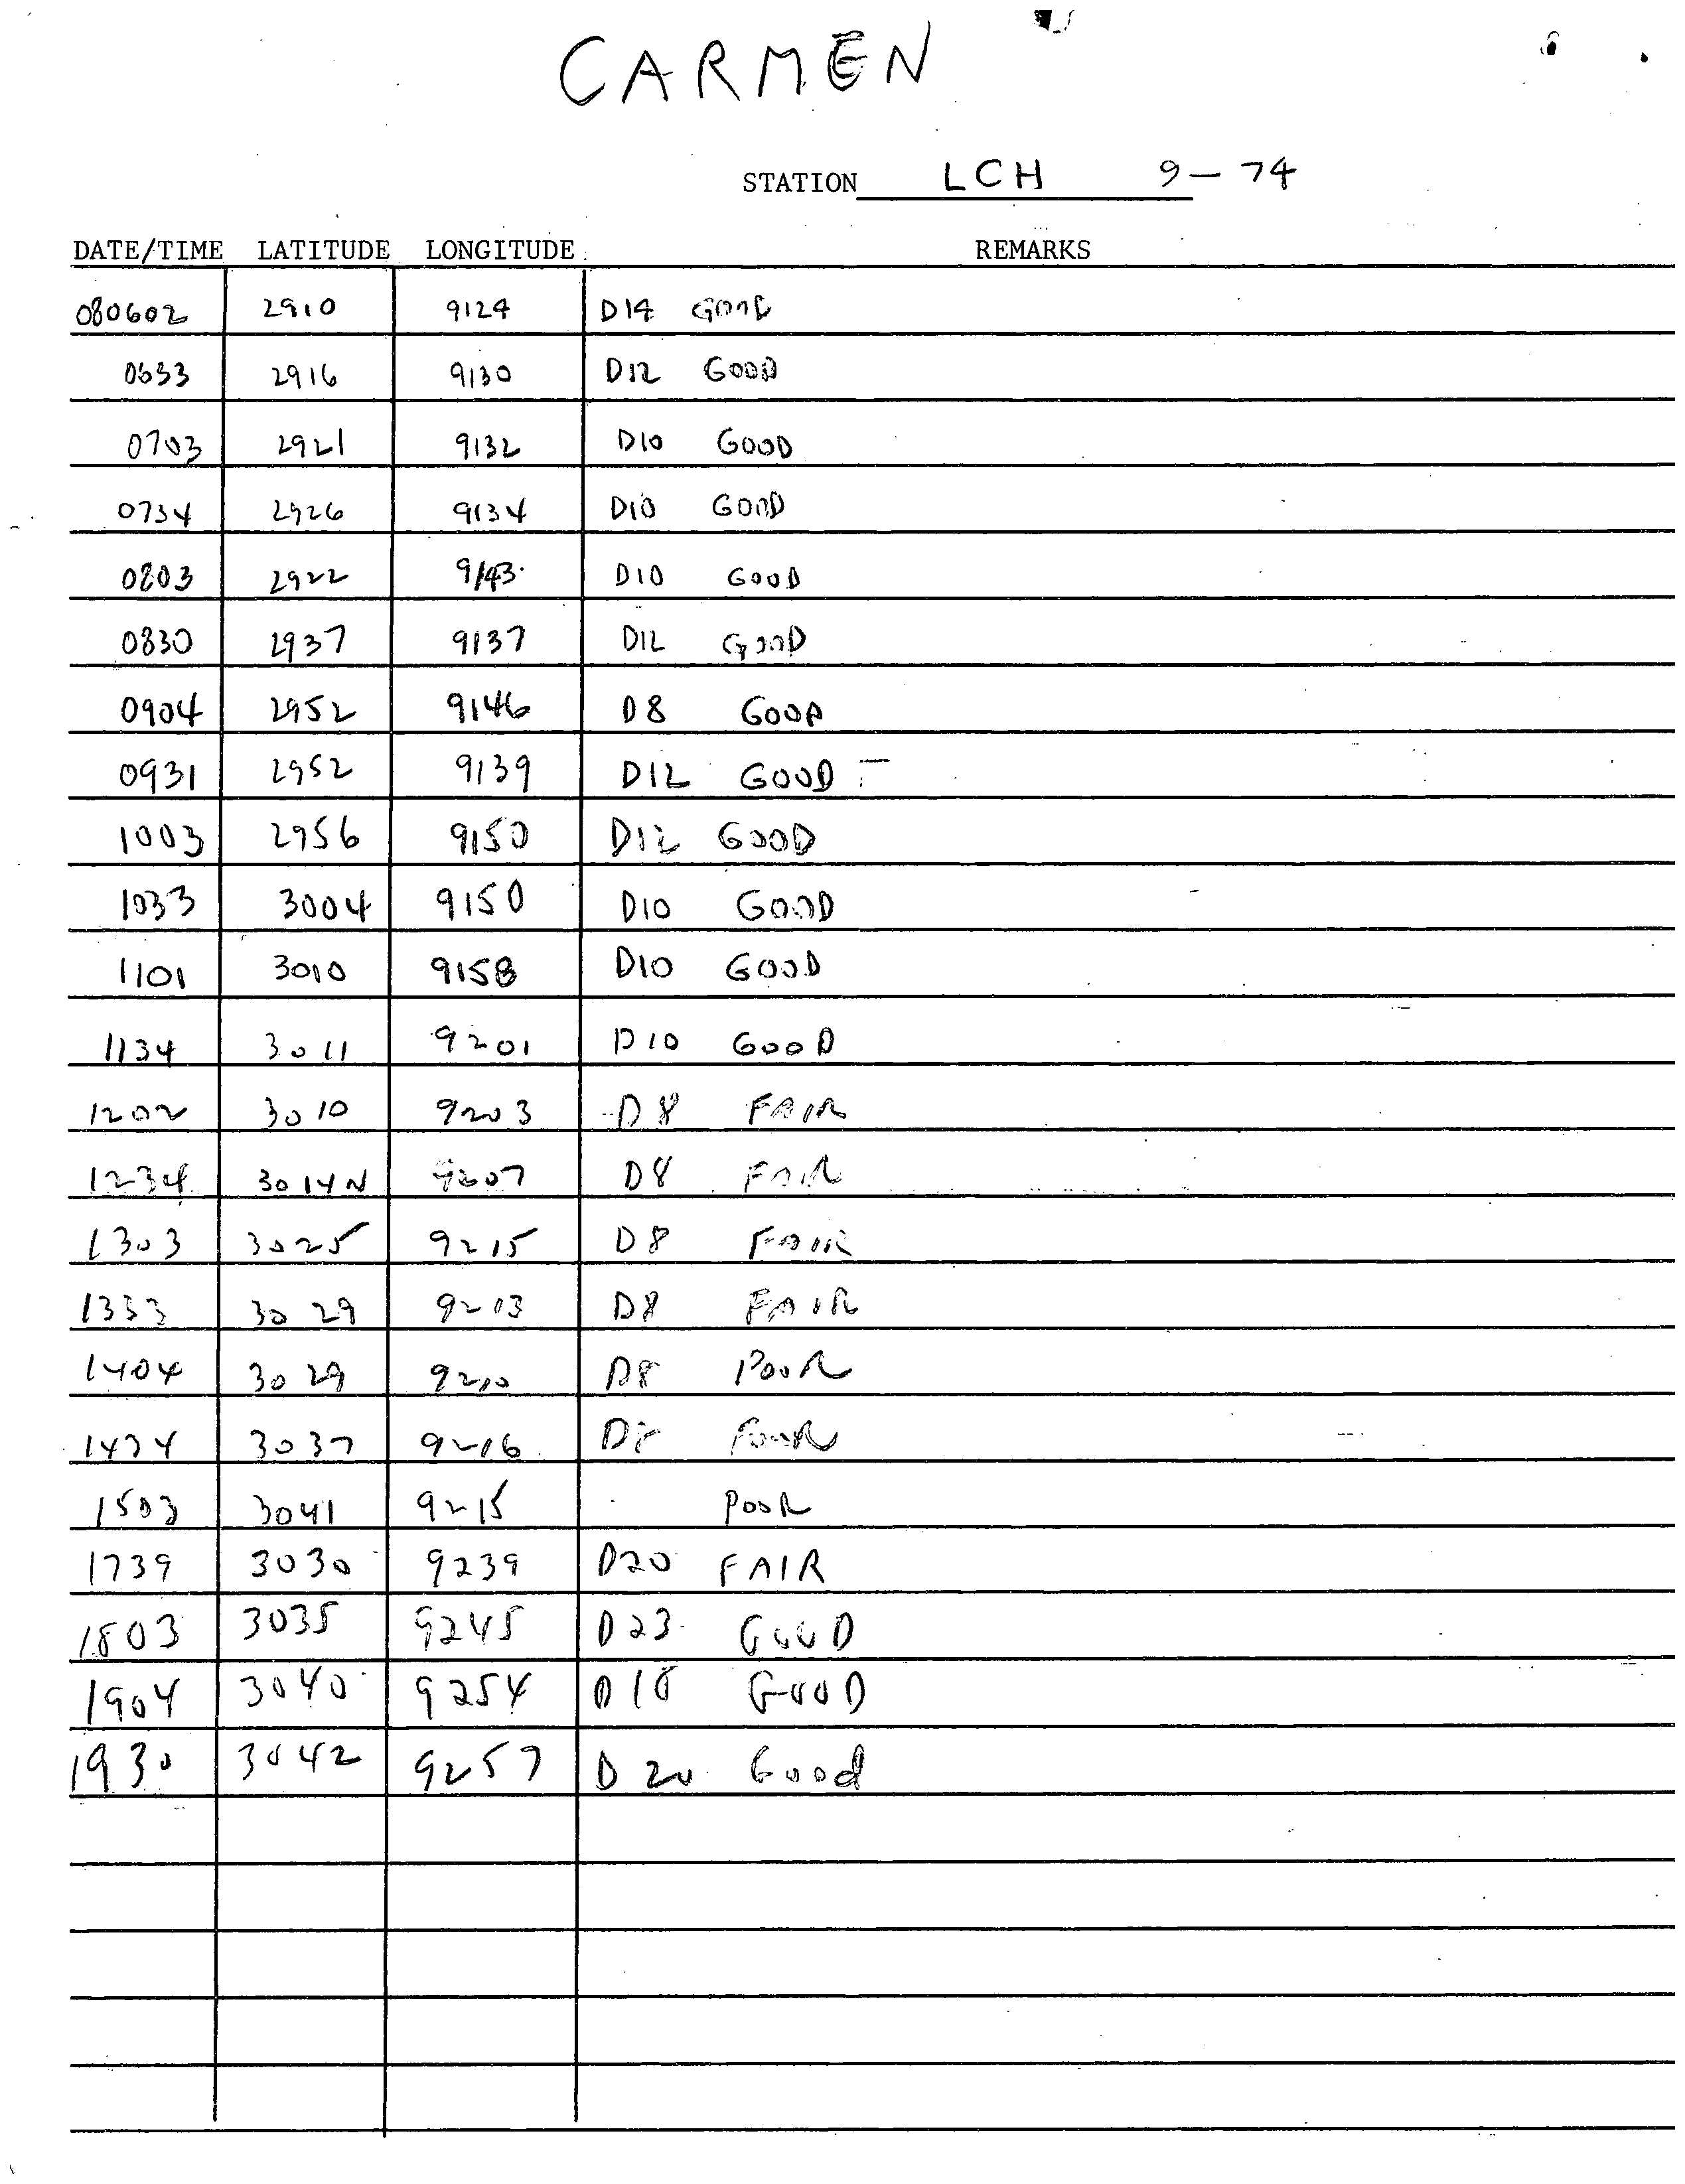 CARMEN
STATION LCH 9-74
DATE/TIME LATITUDE LONGITUDE REMARKS
080602 2910 9124 D14 GOOD
0633 2916 9130 D12 GOOD
0703 2921 9132 D10 GOOD
0734 2926 9134 D10 GOOD
0803 2922 9143 D10 GOOD
0830 2937 9137 D12 GOOD
0904 2952 9146 D8 GOOD
0931 2952 9139 D12 GOOD
1003 2956 9150 D12 GOOD
1033 3004 9150 D10 GOOD
1101 3010 9158 D10 GOOD
1134 3011 9201 D10 GOOD
1202 3010 9203 D8 FAIR
1234 3014N 9207 D8 FAIR
1303 3025 9215 D8 FAIR
1333 3029 9203 D8 FAIR
1404 3029 9210 D8 POOR
1434 3037 9216 D8 POOR
1503 3041 9215 POOR
1739 3030 9239 D20 FAIR
1803 3035 9245 D23 GOOD
1904 3040 9254 D18 GOOD
1930 3042 9257 D20 Good